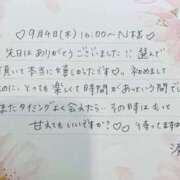 ♡9月4日(木)16:00〜N様
先日はありがとうございました!!選んで
頂いて本当に嬉しかったです♡。初めまして
なのに、とっても楽しくて時間があっという間でした
またタイミングよく会えたら、その時はもっと
甘えてもいいですか?♡♡待ってますね